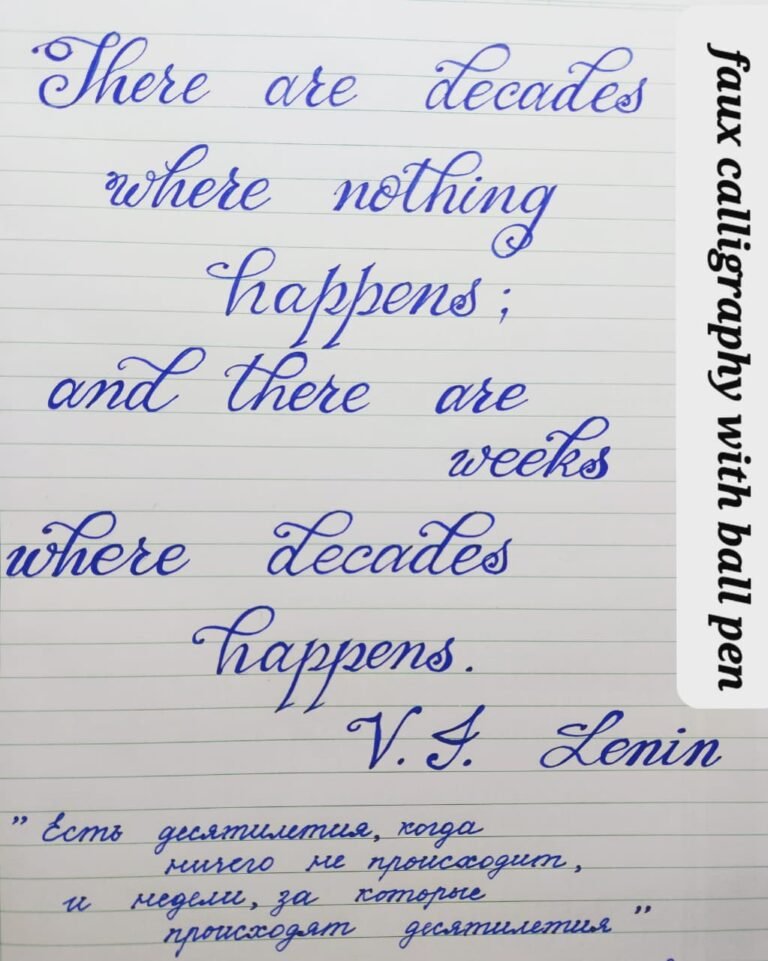 There are decades
where nothing
happens;
and there are
weeks
where decades
happens.
V. I. Lenin
" Есть десятилетия, когда
ничего не происходит,
и недели, за которые
происходят десятилетия "
faux calligraphy with ball pen